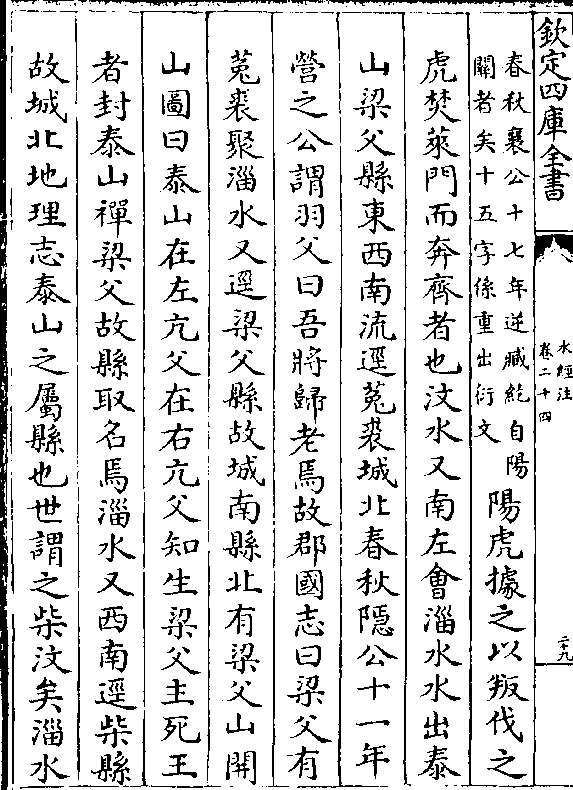 欽定四庫全書
水經注
卷二十四
二十九
春秋襄公十七年逆臧紇自陽
關者矣十五字係重出衍文
陽虎據之以叛伐之
虎焚萊門而奔齊者也汶水又南左會淄水水出泰
山梁父縣東西南流逕菟裘城北春秋隱公十一年
營之公謂羽父曰吾將歸老焉故郡國志曰梁父有
菟裘聚淄水又逕梁父縣故城南縣北有梁父山開
山圖曰泰山在左亢父在右亢父知生梁父主死王
者封泰山禪梁父故縣取名焉淄水又西南逕柴縣
故城北地理志泰山之屬縣也世謂之柴汶矣淄水